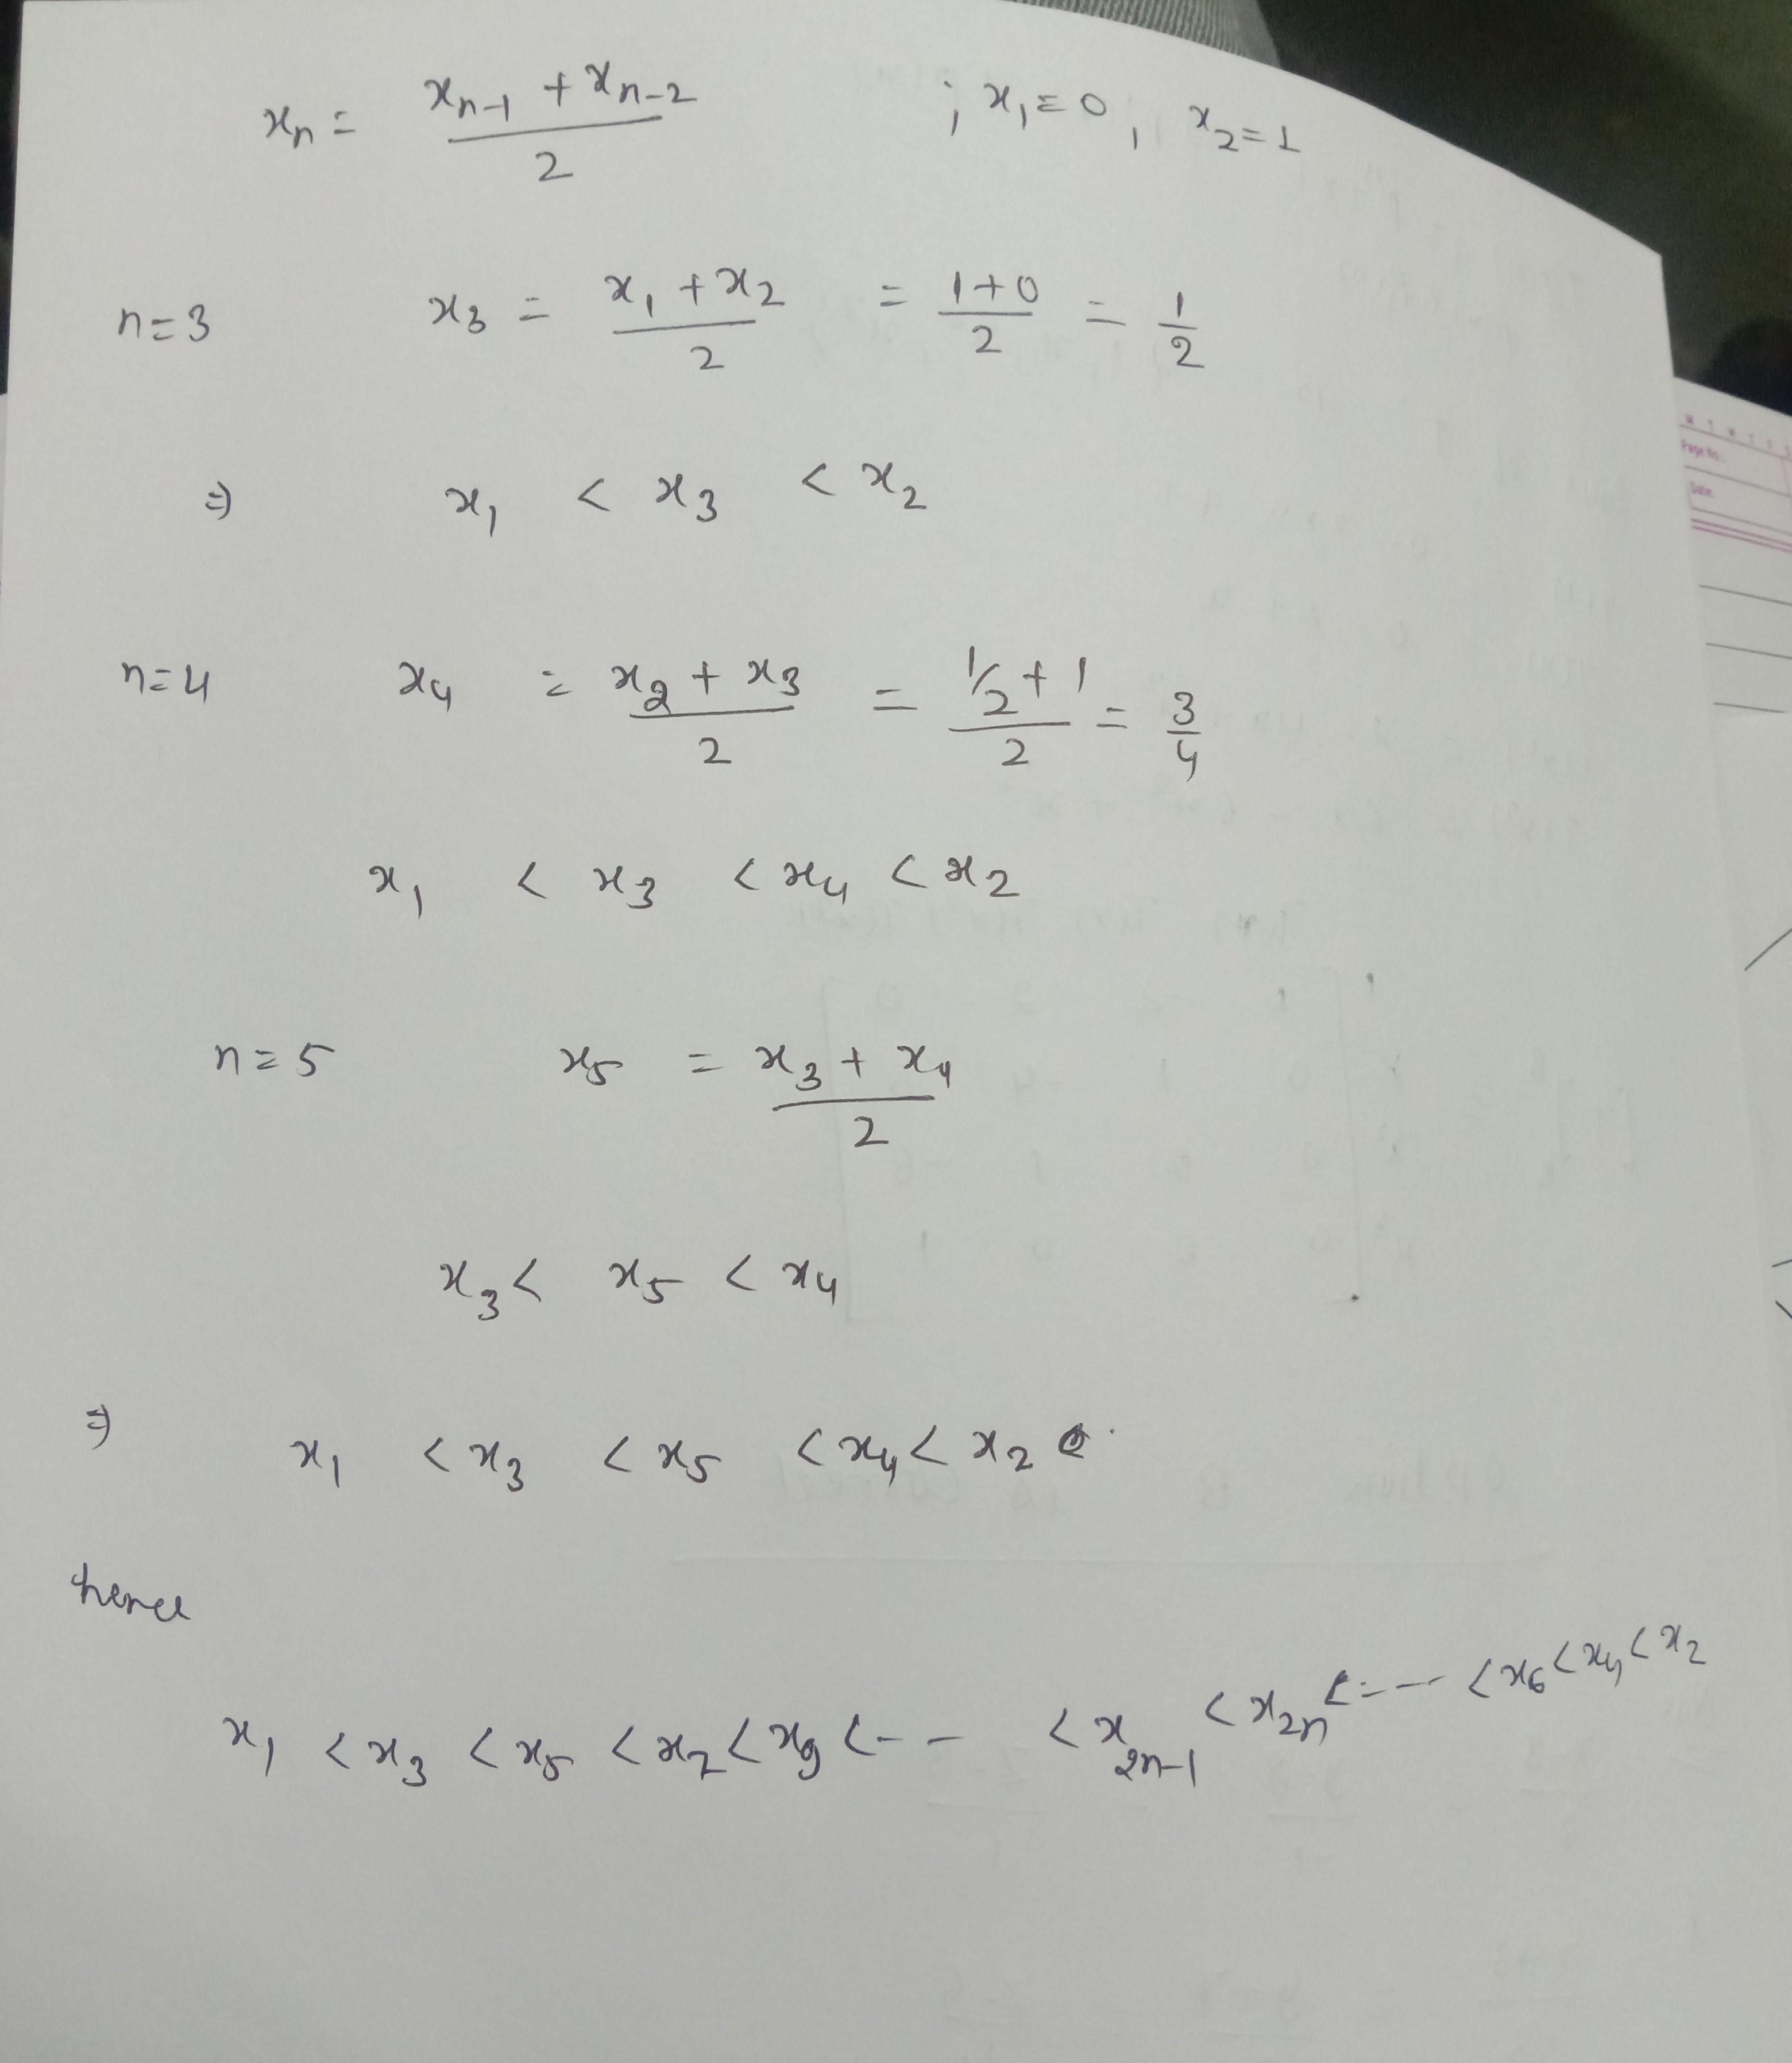 xₙ = (xₙ₋₁ + xₙ₋₂)/2 ; x₁ = 0, x₂ = 1
n=3 x₃ = (x₁ + x₂)/2 = (1+0)/2 = 1/2
⇒ x₁ < x₃ < x₂
n=4 x₄ = (x₂ + x₃)/2 = (1/2 + 1)/2 = 3/4
x₁ < x₃ < x₄ < x₂
n=5 x₅ = (x₃ + x₄)/2
x₃ < x₅ < x₄
⇒ x₁ < x₃ < x₅ < x₄ < x₂
hence
x₁ < x₃ < x₅ < x₇ < x₉ < -- < x₂ₙ₋₁ < x₂ₙ < --- < x₆ < x₄ < x₂
Page No.:
Date: